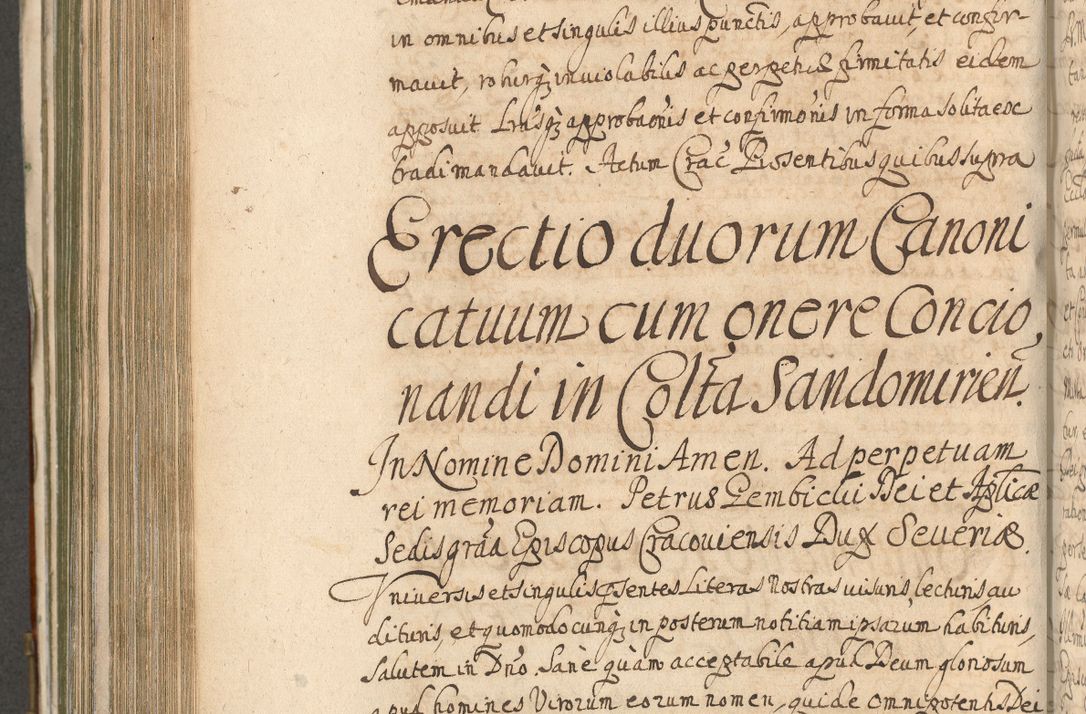 in omnibus et singulis illius punctis, approbauit, et confir
mauit, roburq; inuiolabilis ac perpetuæ firmitatis eidem
apposuit Lrãsq; approbaõnis et confirmõnis in forma solita ex
tradi mandauit. Actum Crac Præsentibus quibus supra
Erectio duorum Canoni
catuum cum onere Concio,
nandi in Coltã Sandomirien̄.
In Nomine Domini Amen. Ad perpetuam
rei memoriam. Petrus Gembicki Dei et Aplicæ
Sedis grãa Episcopus Cracouiensis Dux Seueriæ.
Vniuersis et singulis pñsentes Literas Nostras uisuris, lecturis, au
dituris, et quomodocunq; in posterum notitiam ipsarum habituris,
Salutem in Dnõ. Sane quam acceptabile apud Deum gloriosum
apud homines Virorum eorum nomen, qui de Omnipotentis Dei